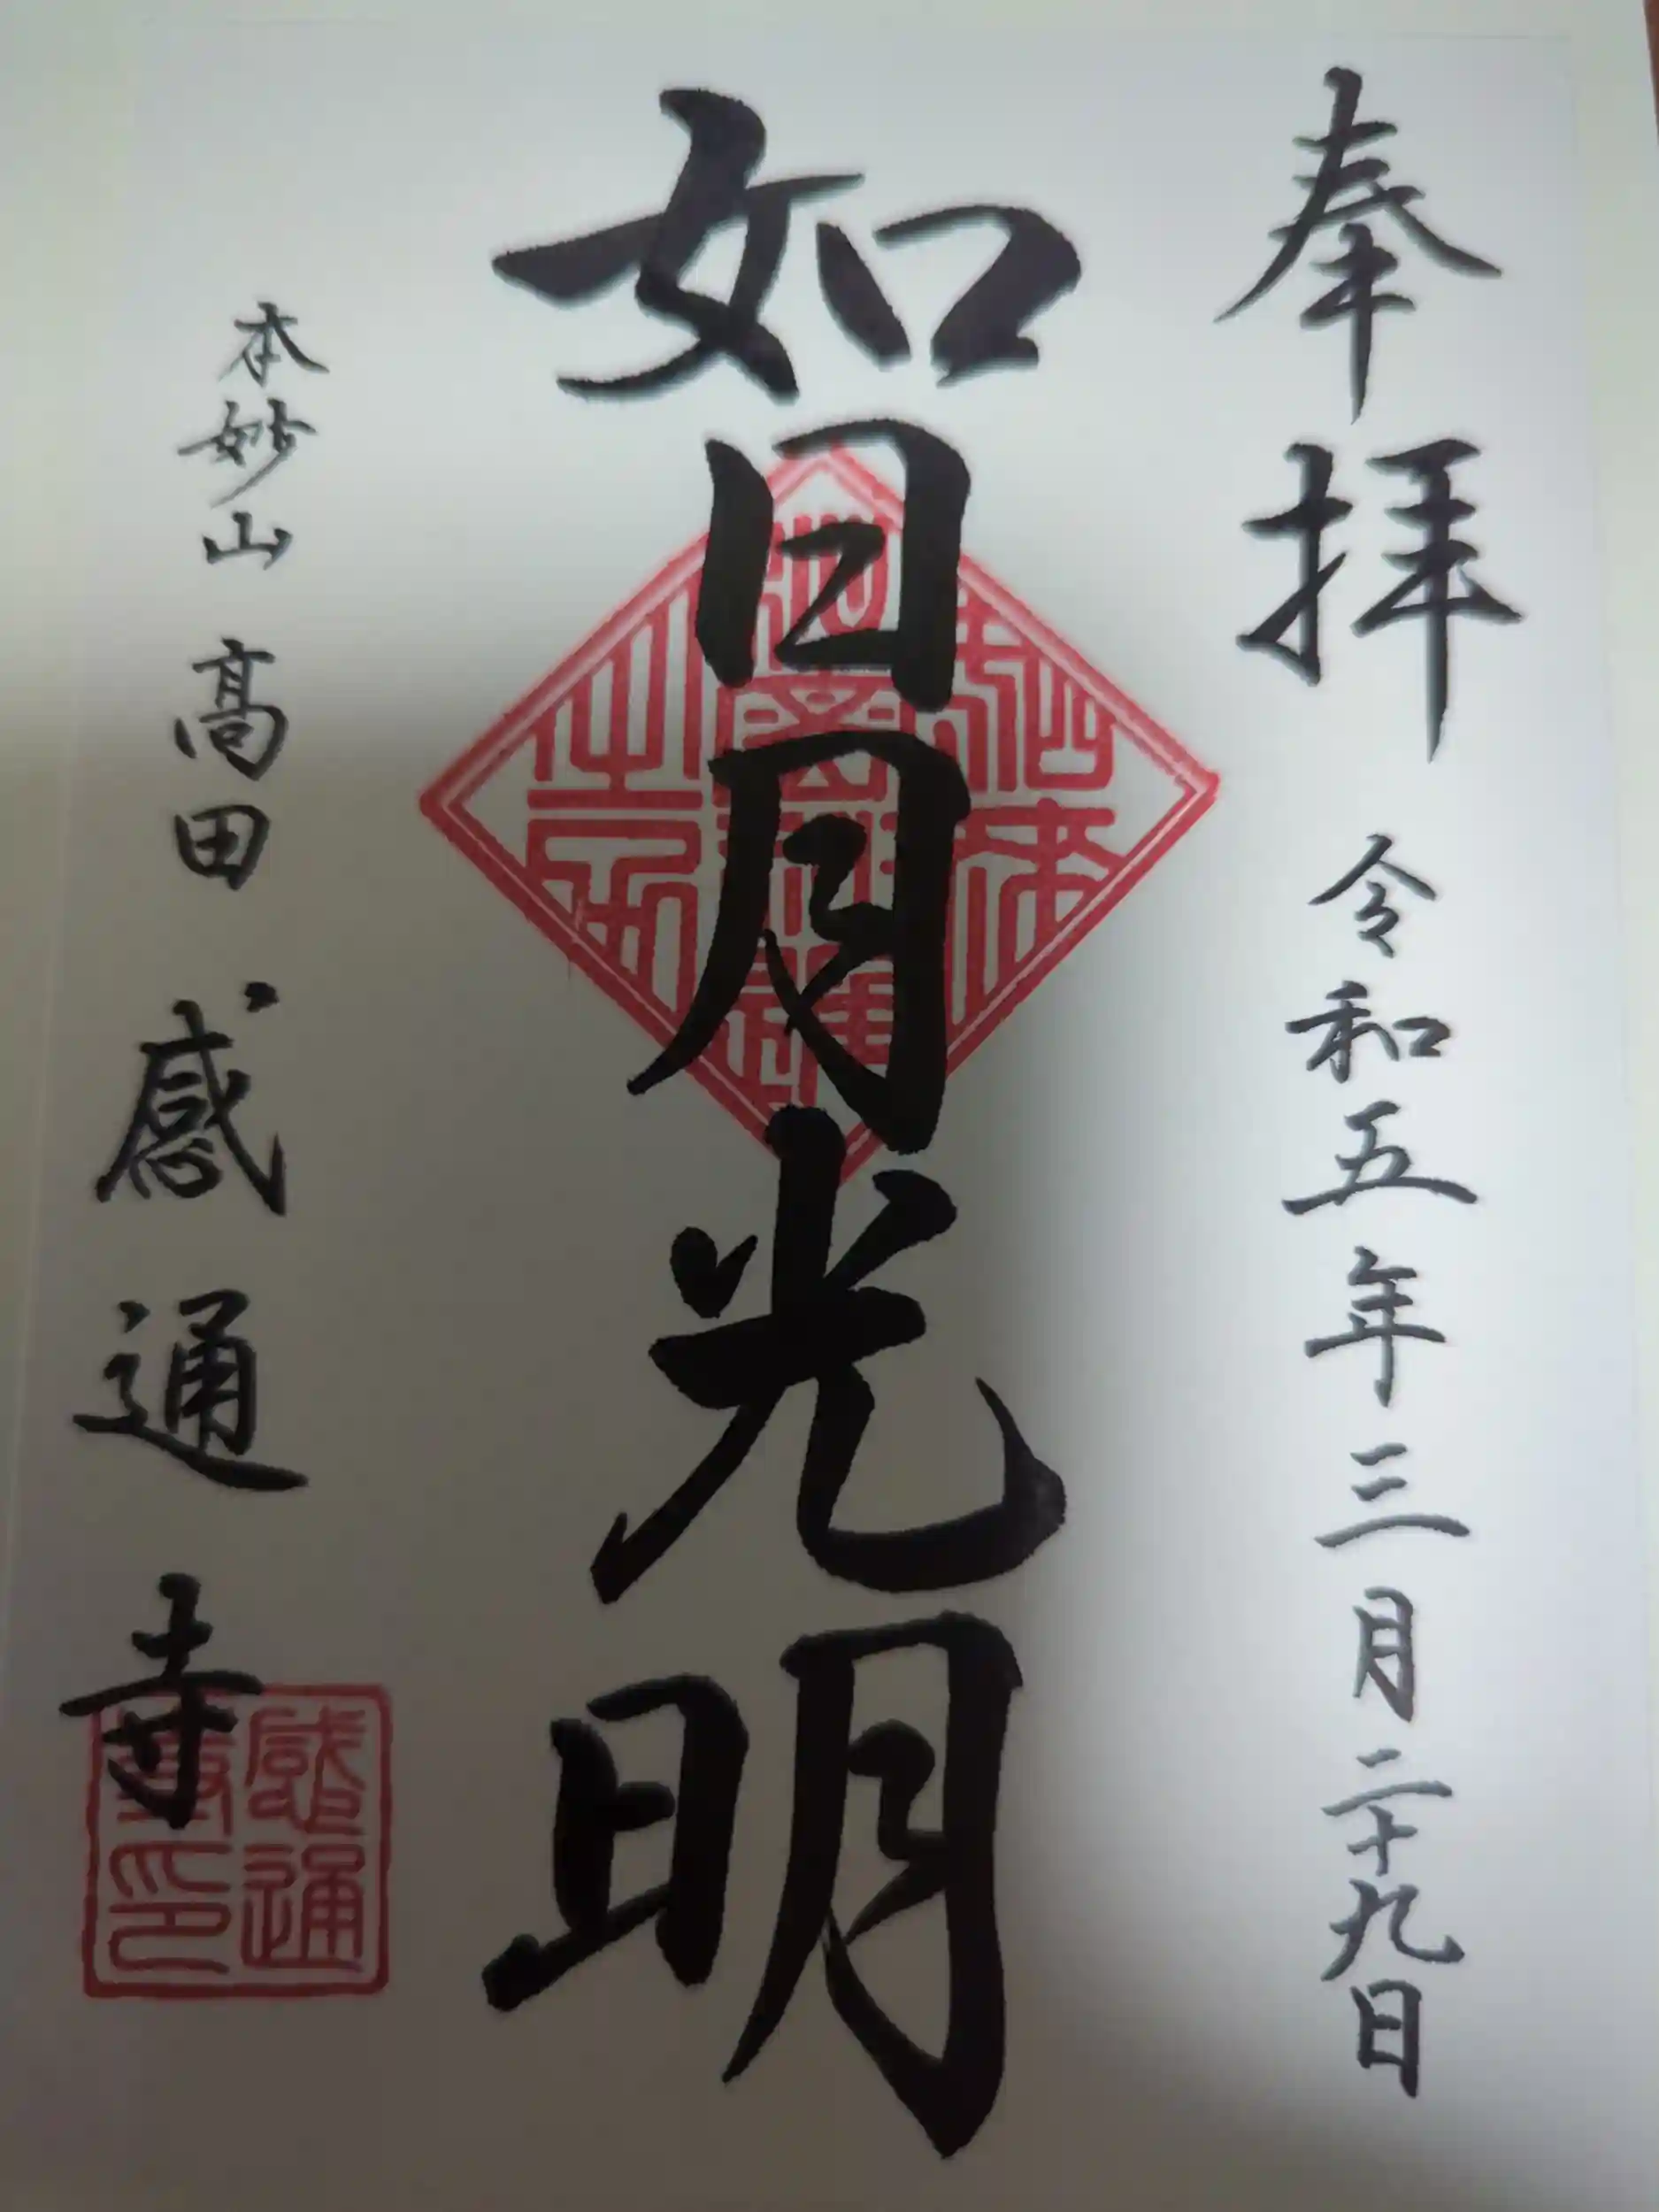 奉拝 令和五年三月二十九日
如日月光明
本妙山 髙田 感通寺
感通
寺印